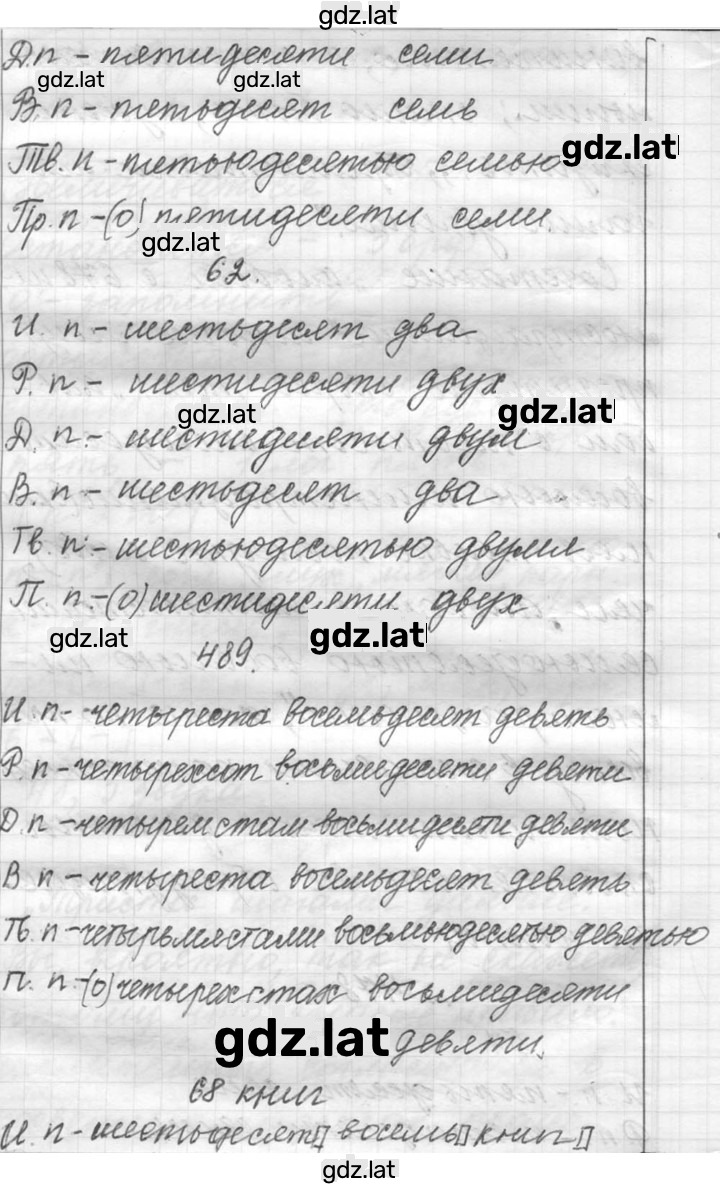 gdz.lat
Д.п - пятидесяти семи
gdz.lat gdz.lat
В.п - петьдесят семь
Тв.п - петьюдесятью семью gdz.lat
Пр.п -(о) петидесяти семи.
gdz.lat
62.
И. п - шестьдесят два
Р. п - шестидесяти двух
gdz.lat gdz.lat
Д. п.- шестидесяти двум
В. п - шестьдесят два
Тв. п.- шестьюдесятью двумя
П. п.-(о) шестидесяти двух
gdz.lat gdz.lat
489.
И. п- четыреста восемьдесят девять
Р. п -четырехсот восьмидесяти девяти
Д. п -четыремстам восьмидесяти девяти
В п -четыреста восемьдесят девять
Тв. п -четырьмястами восьмьюдесятью девятью
П. п.-(о) четырехстах восьмидесяти
gdz.lat девяти.
68 книг
И. п - шестьдесят[] восемь[] книг[]
gdz.lat